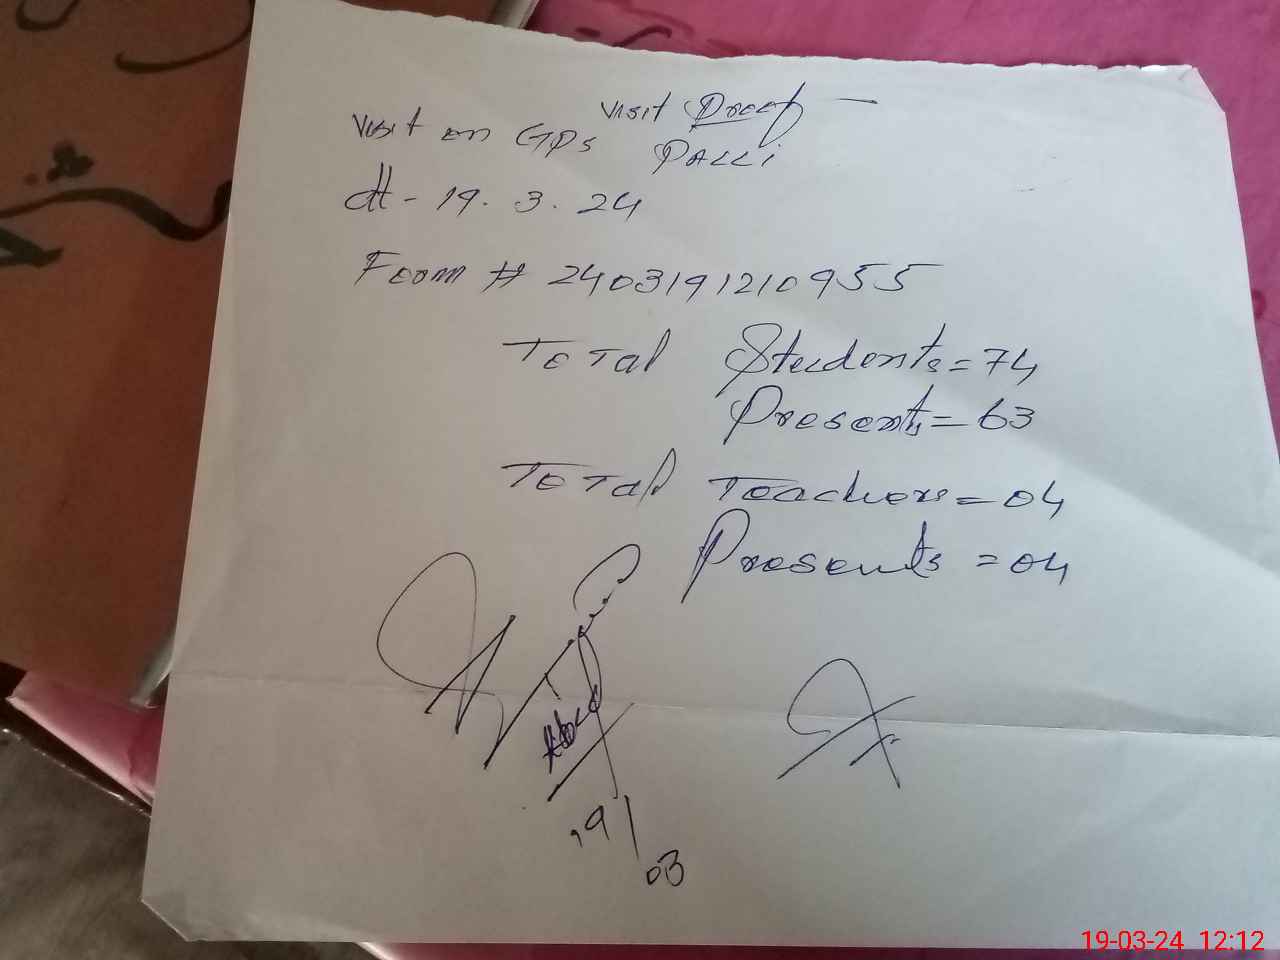 Visit Proof —
Visit on GPS PALLi
dt - 19. 3. 24
Form # 2403191210955
Total Students = 74
Presents = 63
Total Teachers = 04
Presents = 04
19/03
19-03-24 12:12